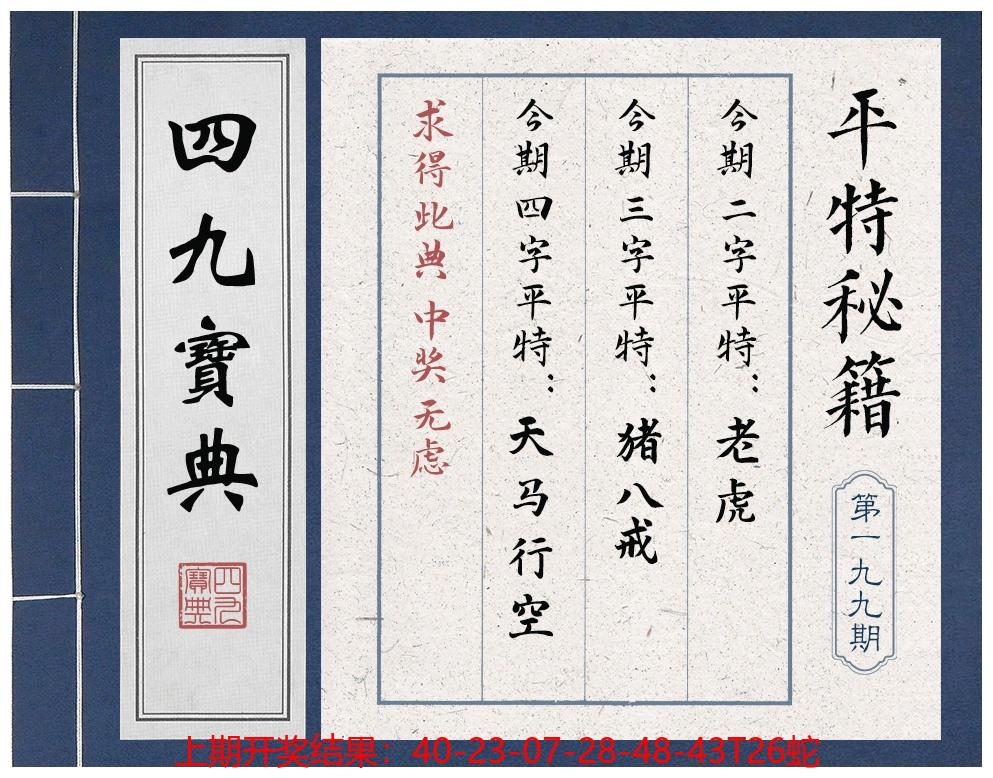 平特秘籍
第一九九期
今期二字平特：老虎
今期三字平特：猪八戒
今期四字平特：天马行空
求得此典 中奖无虑
四九寶典
四九寶典
上期开奖结果：40-23-07-28-48-43T26蛇